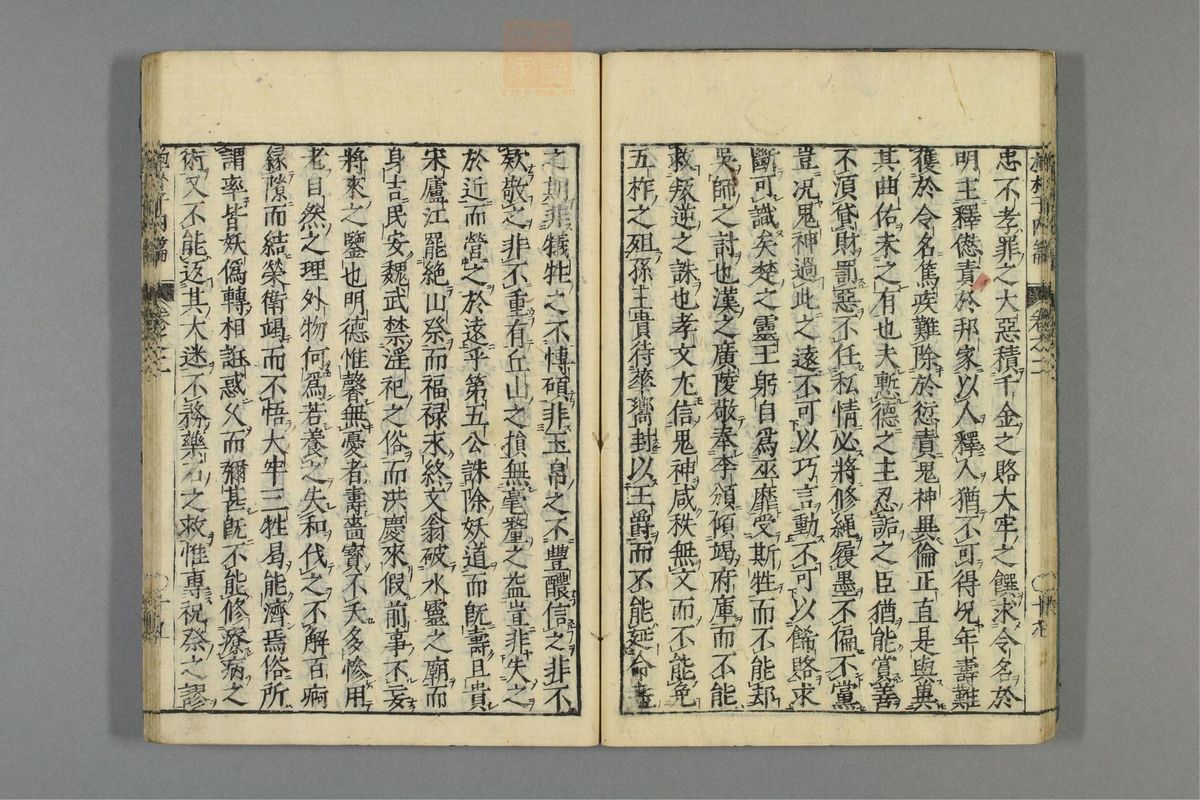 忠不孝罪之大惡積千金之賂大牢之饌求令名於
明王釋愆責於邦家以人釋人猶不可得況年壽難
獲於令名篤疾難除於愆責鬼神異倫正直是與冀
其曲佑未之有也夫慙德之主忍詬之臣猶能賞善
不須貸財罰惡不任私情必將修繩履墨不偏不黨
豈況鬼神過此之遠不可以巧言動不可以飾賂求
斷可識矣楚之靈王躬自爲巫靡愛斯牲而不能却
吳師之討也漢之廣陵敬奉李頒傾竭府庫而不能
救叛逆之誅也孝文尤信鬼神咸秩無文而不能免
五柞之殂孫主貴待華嚮封以王爵而不能延命盡
之期非犧牲之不博碩非玉帛之不豐醲信之非不
欵敬之非不重有丘山之損無毫釐之益豈非失之
於近而營之於遠乎第五公誅除妖道而旣壽且貴
宋廬江罷絕山祭而福祿永終文翁破水靈之廟而
身吉民安魏武禁淫祀之俗而洪慶來假前事不妄
將來之鑒也明德惟馨無憂者壽嗇寶不夭多慘用
老自然之理外物何爲若養之失和伐之不解百痾
緣隙而結榮衛竭而不悟大牢三牲曷能濟焉俗所
謂率皆妖僞轉相誑惑久而彌甚旣不能修療病之
術又不能返其大迷不務藥石之救惟專祝祭之謬